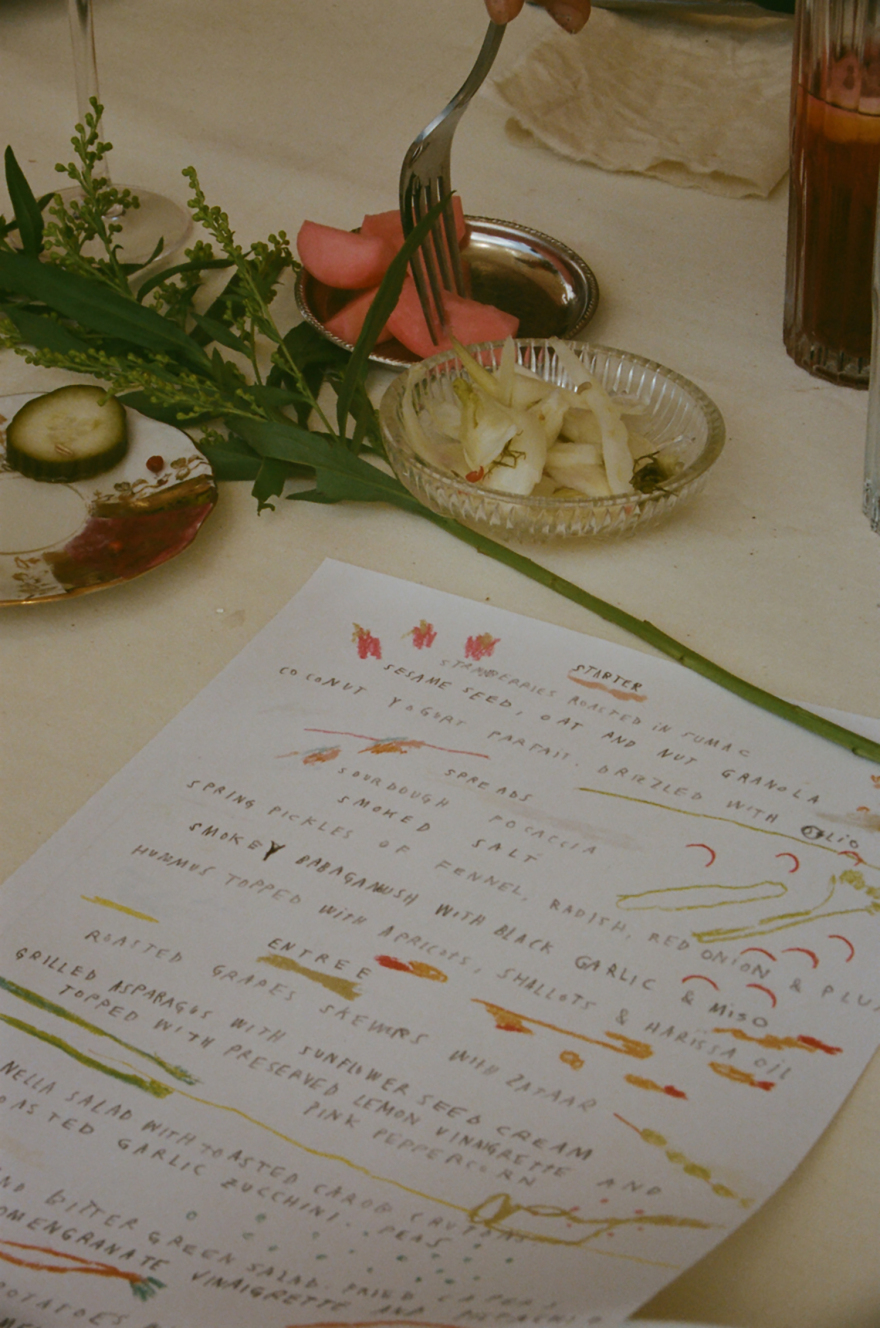 STARTER
STRAWBERRIES ROASTED IN SUMAC
SESAME SEED, OAT AND NUT GRANOLA
COCONUT YOGURT PARFAIT. DRIZZLED WITH OLIO
SPREADS
SOURDOUGH FOCACCIA
SMOKED SALT
SPRING PICKLES OF FENNEL, RADISH, RED ONION & PLU
SMOKEY BABAGANUSH WITH BLACK GARLIC & MISO
HUMMUS TOPPED WITH APRICOTS, SHALLOTS & HARISSA OIL
ENTREE
ROASTED GRAPES SKEWRS WITH ZATAAR
GRILLED ASPARAGUS WITH SUNFLOWER SEED CREAM
TOPPED WITH PRESERVED LEMON VINAIGRETTE AND
PINK PEPPERCORN
NELLA SALAD WITH TOASTED CAROB CROUTONS
OASTED GARLIC ZUCCHINI. PEAS
ND BITTER GREEN SALAD. FRIED CAPERS
OMENGRANATE VINAIGRETTE AND PISTACHIO
POTATOES